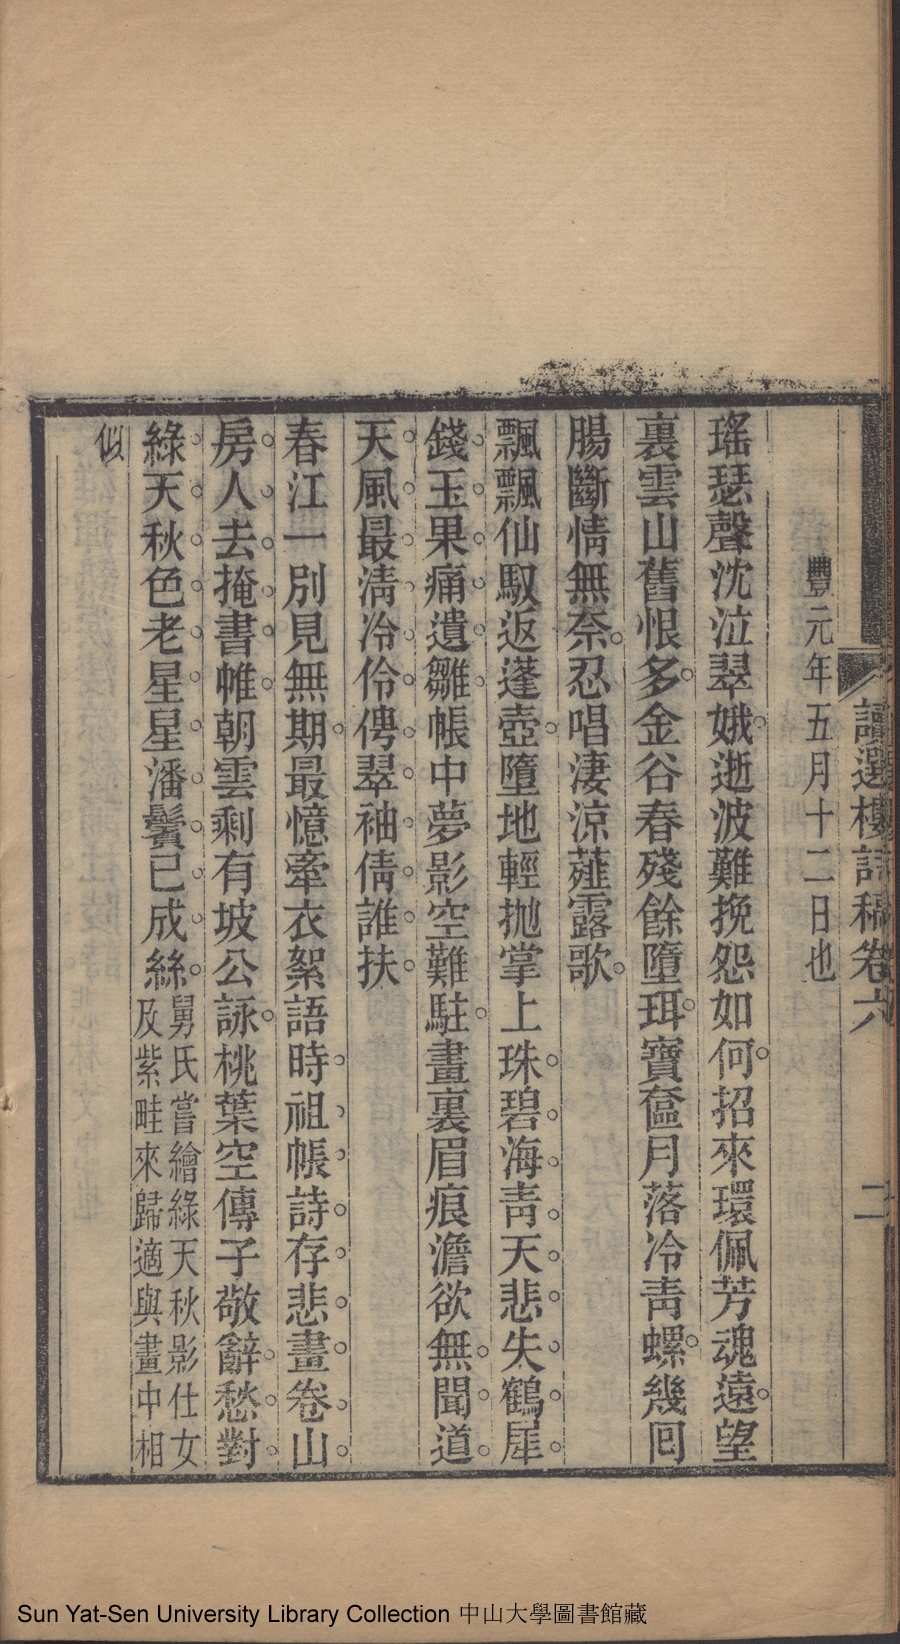 讀選樓詩稿卷六
二
豐元年五月十二日也
瑤瑟聲沈泣翠娥逝波難挽怨如何招來環佩芳魂遠望
裏雲山舊恨多金谷春殘餘墮珥寶奩月落冷青螺幾回
腸斷情無奈忍唱淒涼薤露歌
飄飄仙馭返蓬壺墮地輕抛掌上珠碧海青天悲失鶴犀
錢玉果痛遺雛帳中夢影空難駐畫裏眉痕澹欲無聞道
天風最淸冷伶俜翠袖倩誰扶
春江一別見無期最憶牽衣絮語時祖帳詩存悲畫卷山
房人去掩書帷朝雲剩有坡公詠桃葉空傳子敬辭愁對
綠天秋色老星星潘鬢已成絲
舅氏嘗繪綠天秋影仕女
及紫畦來歸適與畫中相
似
Sun Yat-Sen University Library Collection 中山大學圖書館藏